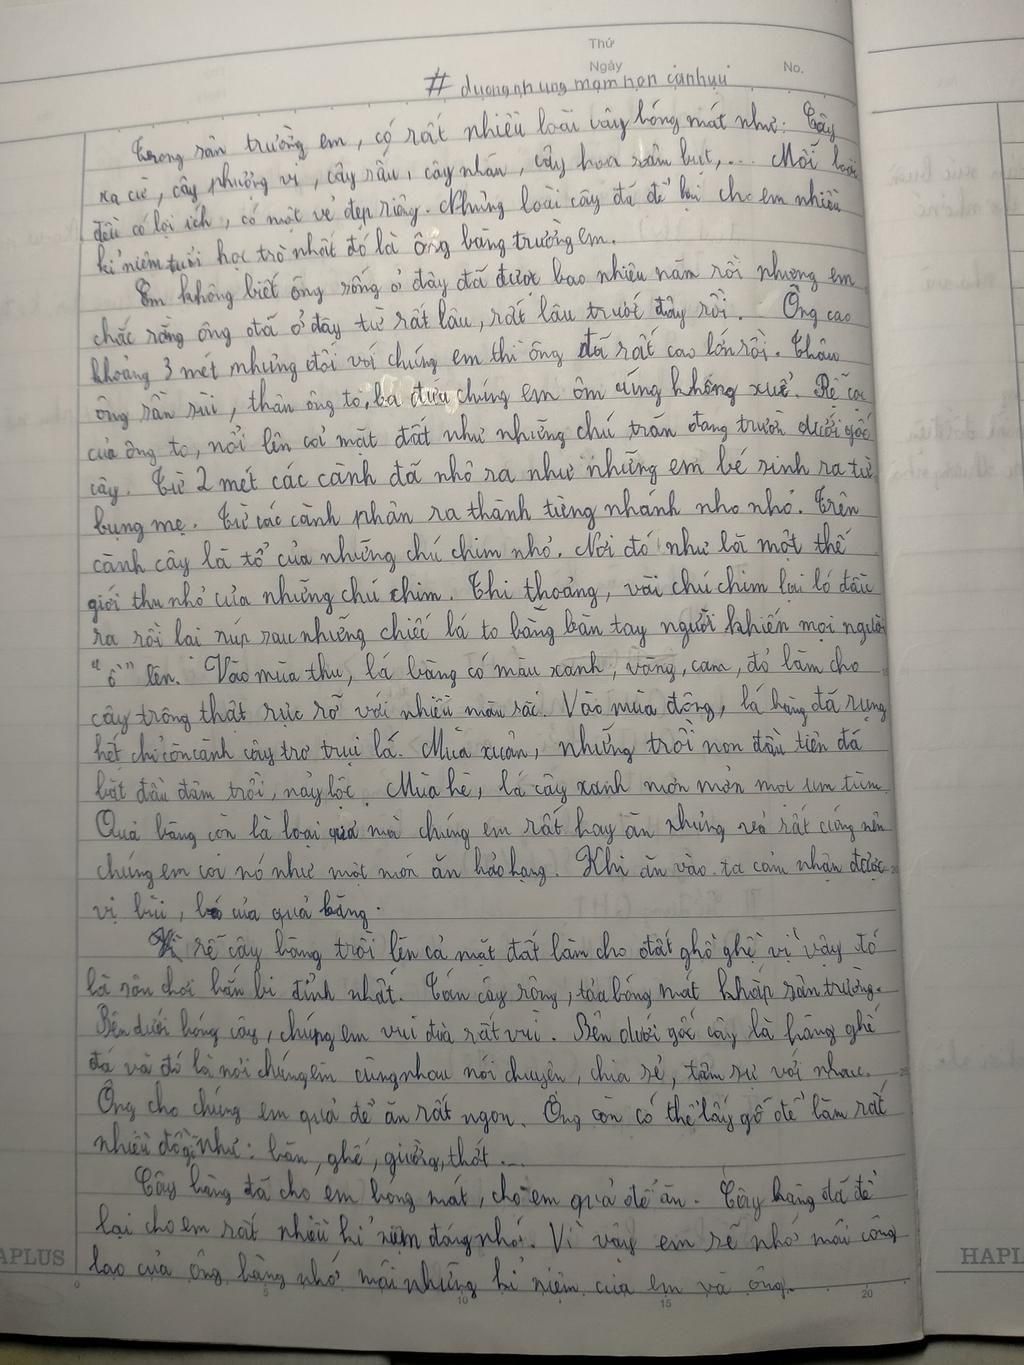 Thứ
Ngày No.
# duongnhungmamnon canhuu
Trong sân trường em, có rất nhiều loài cây bóng mát như: Cây
xà cừ, cây phượng vĩ, cây sấu, cây nhãn, cây hoa râm bụt,... Mỗi loài
đều có lợi ích, có một vẻ đẹp riêng. Những loài cây đã để lại cho em nhiều
kỉ niệm tuổi học trò nhất đó là ông bàng trường em.
Em không biết ông sống ở đây đã được bao nhiêu năm rồi nhưng em
chắc rằng ông đã ở đây từ rất lâu, rất lâu trước đây rồi. Ông cao
khoảng 3 mét nhưng đối với chúng em thì ông đã rất cao lớn rồi. Thân
ông sần sùi, thân ông to, ba đứa chúng em ôm cũng không xuể. Rễ
của ông to, nổi lên cả mặt đất như những chú trăn đang trườn dưới gốc
cây. Từ 2 mét các cành đã nhô ra như những em bé sinh ra từ
bụng mẹ. Từ các cành phân ra thành từng nhánh nho nhỏ. Trên
cành cây là tổ của những chú chim nhỏ. Nơi đó như là một thế
giới thu nhỏ của những chú chim. Thi thoảng, vài chú chim lại ló đầu
ra rồi lại núp sau những chiếc lá to bằng bàn tay người khiến mọi người
"ồ" lên. Vào mùa thu, lá bàng có màu xanh, vàng, cam, đỏ làm cho
cây trông thật rực rỡ với nhiều màu sắc. Vào mùa đông, lá bàng đã rụng
hết chỉ còn cành cây trơ trụi lá. Mùa xuân, những trồi non đầu tiên đã
bắt đầu đâm trồi, nảy lộc. Mùa hè, lá cây xanh mơn mởn mọc um tùm.
Quả bàng còn là loại quả mà chúng em rất hay ăn nhưng nó rất cứng nên
chúng em coi nó như một món ăn hảo hạng. Khi ăn vào, ta cảm nhận được
vị bùi, của quả bàng.
Vì rễ cây bàng trồi lên cả mặt đất làm cho đất ghồ ghề vì vậy đó
là sân chơi bắn bi đỉnh nhất. Tán cây rộng, tỏa bóng mát khắp sân trường.
Bên dưới bóng cây, chúng em vui đùa rất vui. Bên dưới gốc cây là hàng ghế
đá và đó là nơi chúng em cùng nhau nói chuyện, chia sẻ, tâm sự với nhau.
Ông cho chúng em quả để ăn rất ngon. Ông còn có thể lấy gỗ để làm rất
nhiều đồ gỗ như: bàn, ghế, giường, thớt...
Cây bàng đã cho em bóng mát, cho em quả để ăn. Cây bàng đã để
lại cho em rất nhiều kỉ niệm đáng nhớ. Vì vậy em sẽ nhớ mãi công
lao của ông bàng nhớ mãi những kỉ niệm của em và ông.
APLUS
HAPL
5 10 15 20